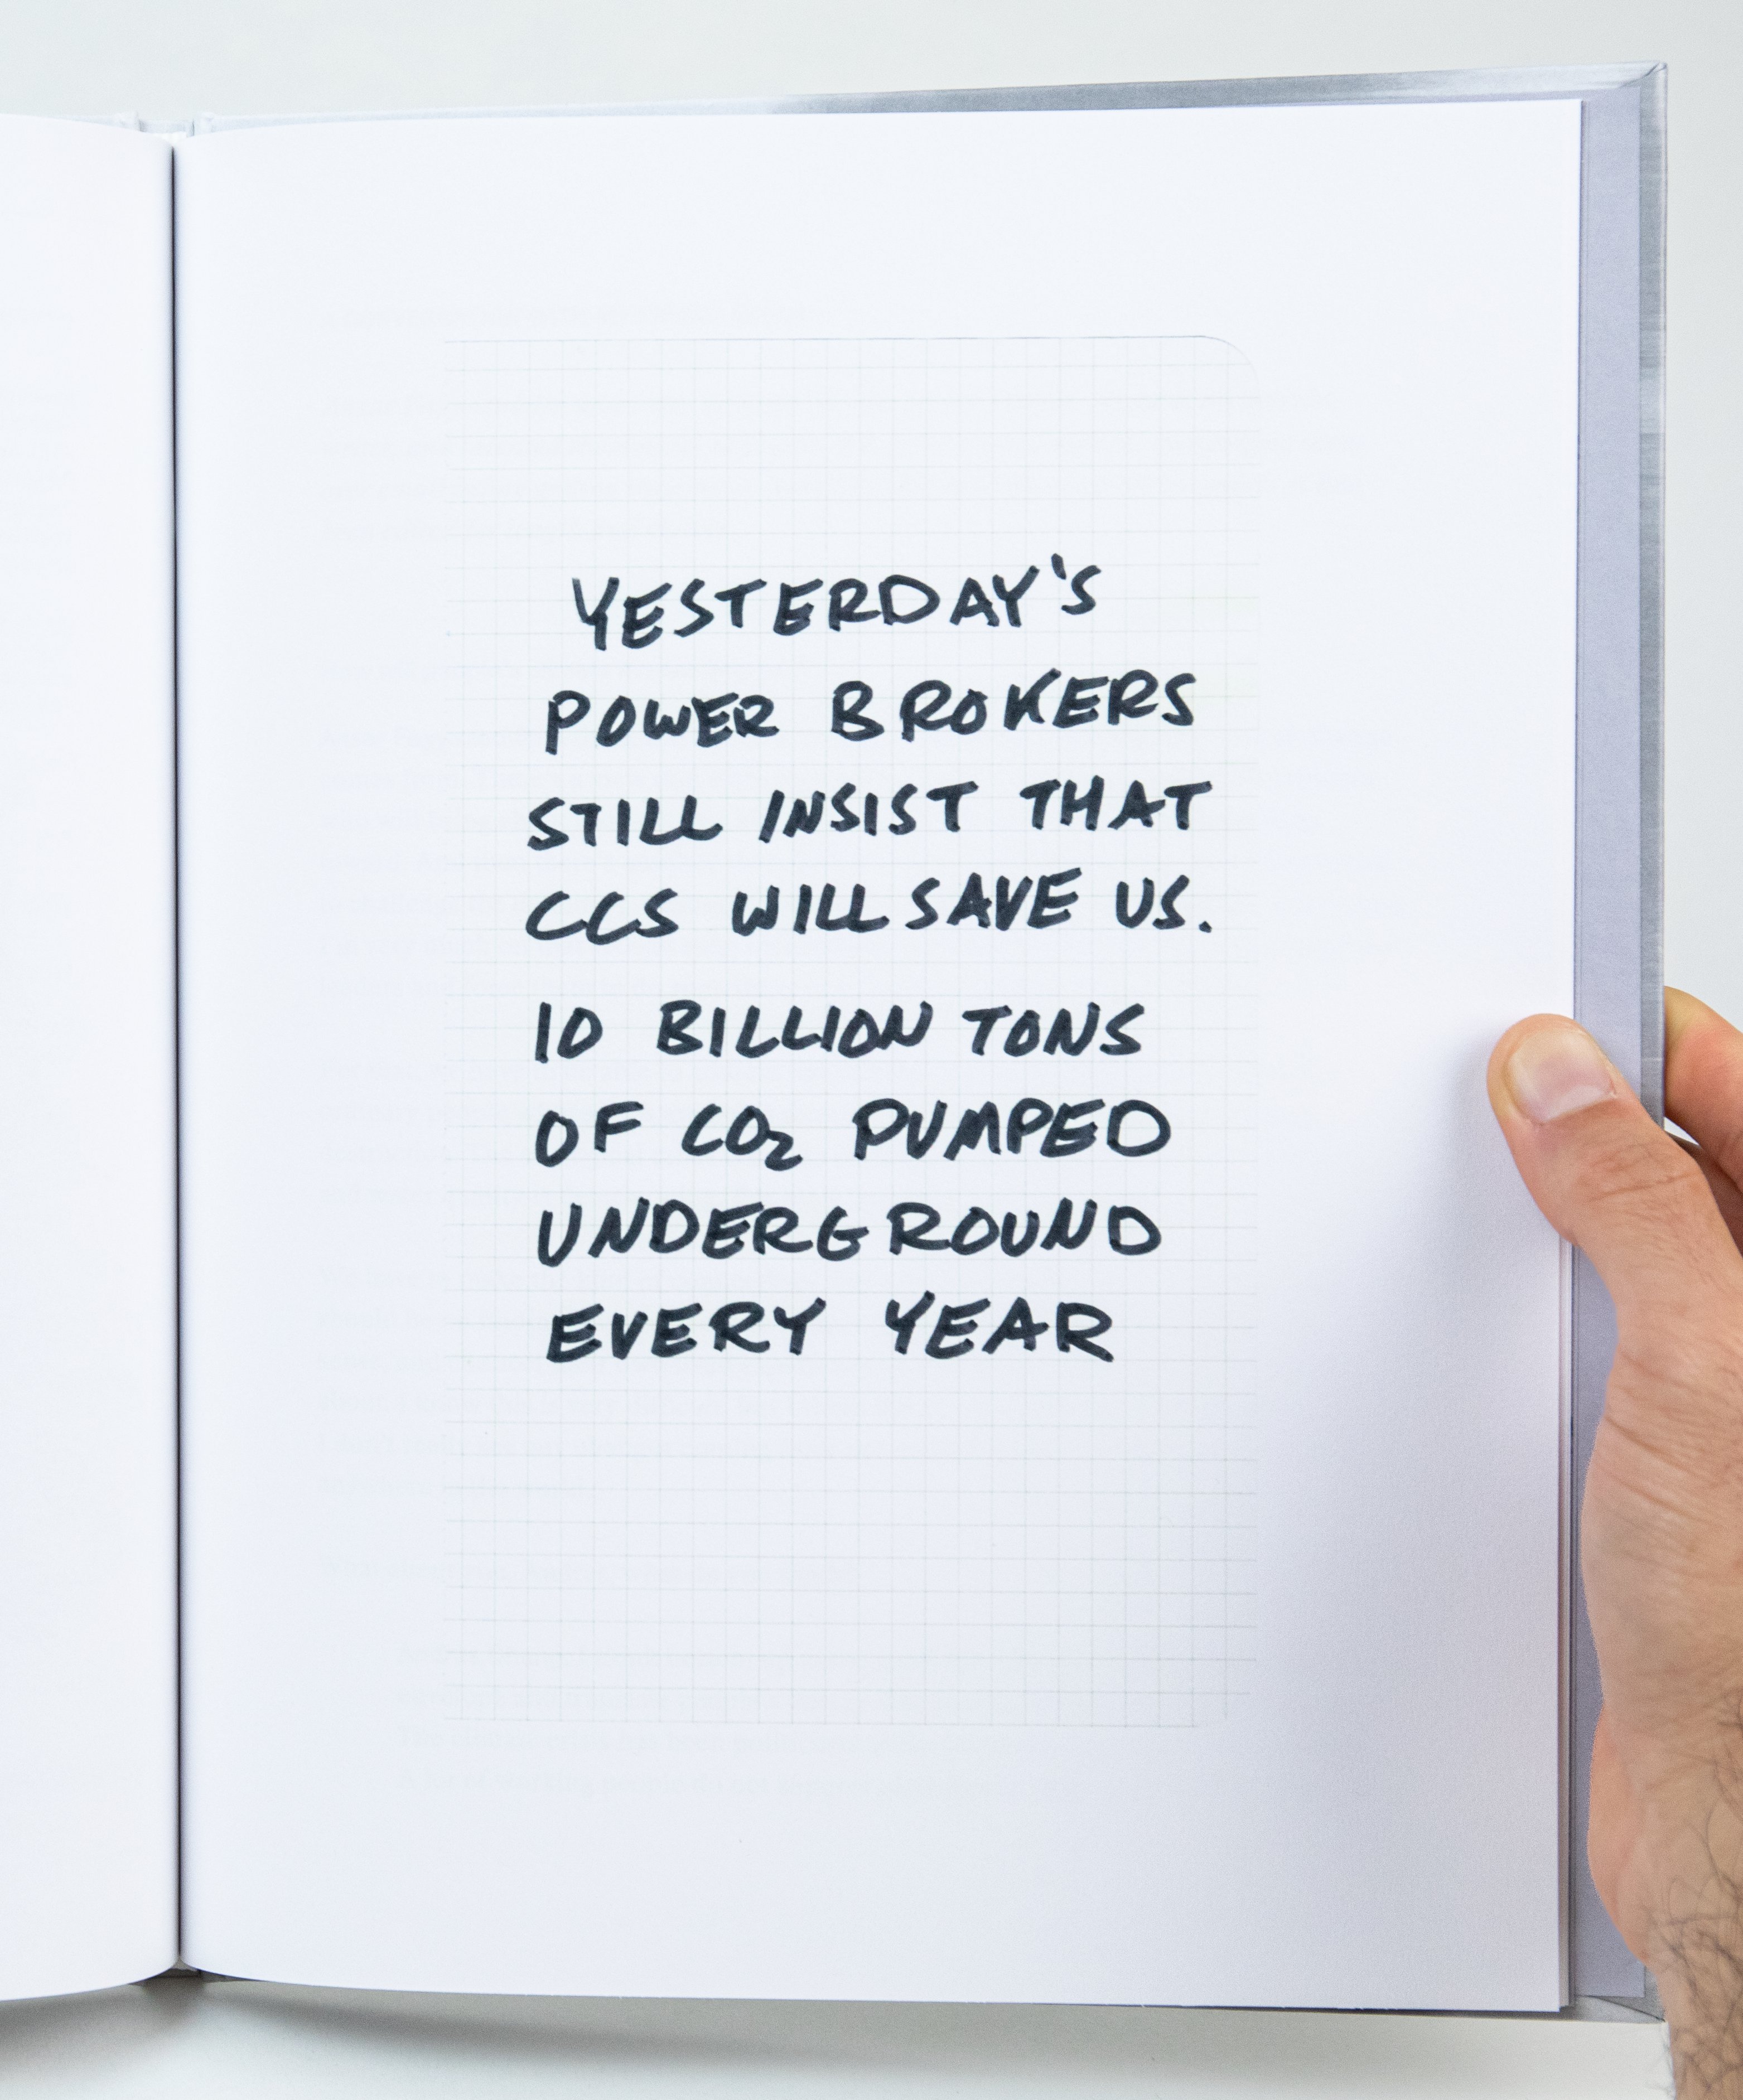 YESTERDAY'S
POWER BROKERS
STILL INSIST THAT
CCS WILL SAVE US.
10 BILLION TONS
OF CO₂ PUMPED
UNDERGROUND
EVERY YEAR